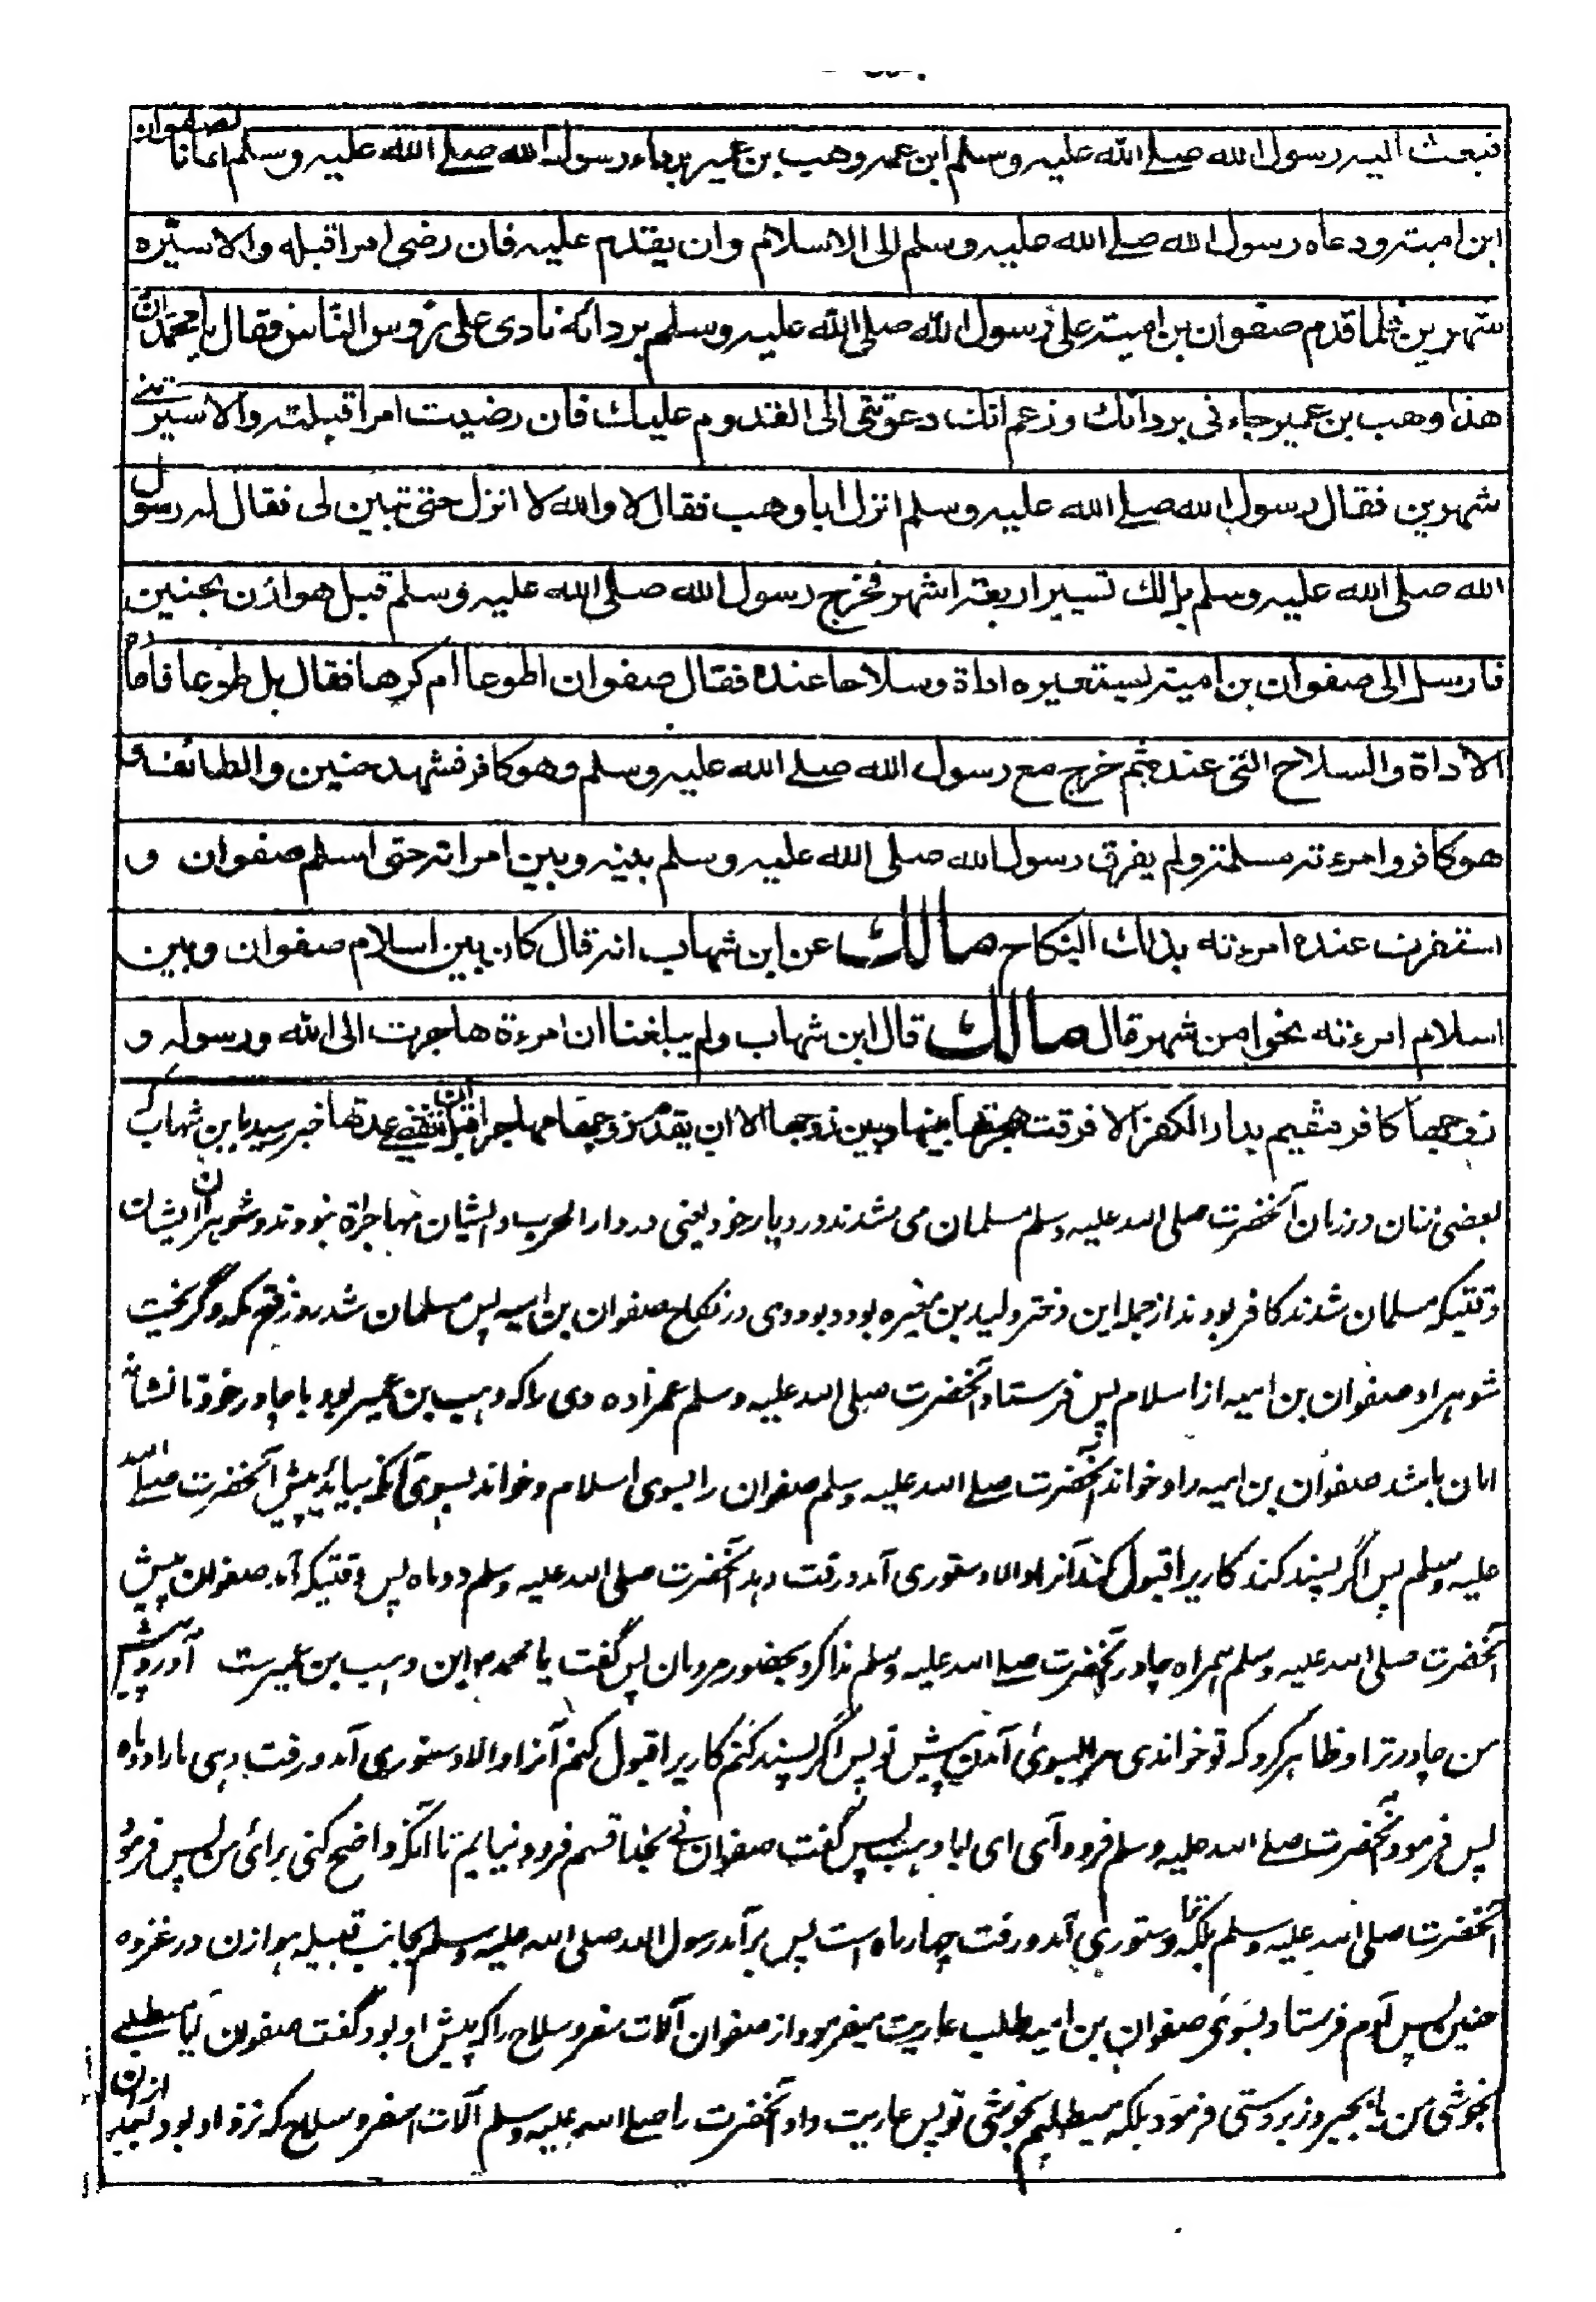 فبعث اليه رسول الله صلى الله عليه وسلم ابن عمه وهب بن عمير برداء رسول الله صلى الله عليه وسلم امانا لصفوان
ابن امية ودعاه رسول الله صلى الله عليه وسلم الى الاسلام وان يقدم عليه فان رضى امرا قبله والا سيّره
شهرين فلما قدم صفوان بن امية على رسول الله صلى الله عليه وسلم بردائه نادى على رؤس الناس فقال يا محمد ان
هذا وهب بن عمير جاءنى بردائك وزعم انك دعوتنى الى القدوم عليك فان رضيت امرا قبلته والا سيرتنى
شهرين فقال رسول الله صلى الله عليه وسلم انزل ابا وهب فقال لا والله لا انزل حتى تبين لى فقال له رسول
الله صلى الله عليه وسلم بل لك تسيير اربعة اشهر فخرج رسول الله صلى الله عليه وسلم قبل هوازن بحنين
فارسل الى صفوان بن امية يستعيره اداة وسلاحا عنده فقال صفوان اطوعا ام كرها فقال بل طوعا فاعاره
الاداة والسلاح التى عنده ثم خرج مع رسول الله صلى الله عليه وسلم وهو كافر فشهد حنين والطائف و
هو كافر وامرءته مسلمة ولم يفرق رسول الله صلى الله عليه وسلم بينه وبين امراته حتى اسلم صفوان و
استقرت عنده امرءته بذلك النكاح مالك عن ابن شهاب انه قال كان بين اسلام صفوان وبين
اسلام امرءته نحوا من شهر قال مالك قال ابن شهاب ولم يبلغنا ان امرءة هاجرت الى الله ورسوله و
زوجها كافر مقيم بدار الكفر الا فرقت هجرتها بينها وبين زوجها الا ان يقدم زوجها مهاجرا قبل ان تنقضى عدتها خبر رسيد بابن شهاب كه
بعضى زنان در زمان آنحضرت صلى الله عليه وسلم مسلمان مى شدند در ديار خود يعنى در دار الحرب و ايشان مهاجرة نبودند و شوهران ايشان
وقتيكه مسلمان شدند كافر بودند از جمله اين دختر وليد بن مغيره بود و بود وى در نكاح صفوان بن اميه پس مسلمان شد روز فتح مكه و گريخت
شوهر او صفوان بن اميه از اسلام پس فرستاد آنحضرت صلى الله عليه وسلم عمزاده وى را كه وهب بن عمير بود با چادر خود تا نشان
امان باشد صفوان بن اميه را و خواند آنحضرت صلى الله عليه وسلم صفوان را بسوى اسلام و خواند بسوى آنكه بيايد پيش آنحضرت صلى الله
عليه وسلم پس اگر پسند كند كاريرا قبول كند آنرا و الا دستورى آمد و رفت دهد آنحضرت صلى الله عليه وسلم دو ماه پس وقتيكه آمد صفوان پيش
آنحضرت صلى الله عليه وسلم همراه چادر آنحضرت صلى الله عليه وسلم ندا كرد بحضور مردمان پس گفت يا محمد اين وهب بن عمير ست آورد پيش
من چادر ترا و ظاهر كرد كه تو خواندى مرا بسوى آمدن پيش تو پس اگر پسند كنم كاريرا قبول كنم آنرا و الا دستورى آمد و رفت دهى مارا دو ماه
پس فرمود آنحضرت صلى الله عليه وسلم فرود آى اى ابا وهب پس گفت صفوان نى بخدا قسم فرود نيايم تا آنكه واضح كنى براى من پس فرمود
آنحضرت صلى الله عليه وسلم بلكه ترا دستورى آمد و رفت چهار ماه است پس برآمد رسول الله صلى الله عليه وسلم بجانب قبيله هوازن در غزوه
حنين پس آدم فرستاد بسوى صفوان بن اميه طلب عاريت ميفرمود از صفوان آلات سفر و سلاح را كه پيش او بود گفت صفوان آيا مي طلبى
بخوشى من يا بجبر و زبردستى فرمود بلكه ميطلبم بخوشى تو پس عاريت داد آنحضرت را صلى الله عليه وسلم آلات سفر و سلاح كه نزد او بود بعد ازان